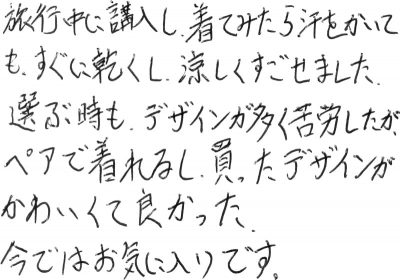 旅行中に講入し、着てみたら汗をかいて
も、すぐに乾くし、涼しくすごせました、
選ぶ時も、デザインが多く苦労したが、
ペアで着れるし、買ったデザインが
かわいくて良かった、
今ではお気に入りです。